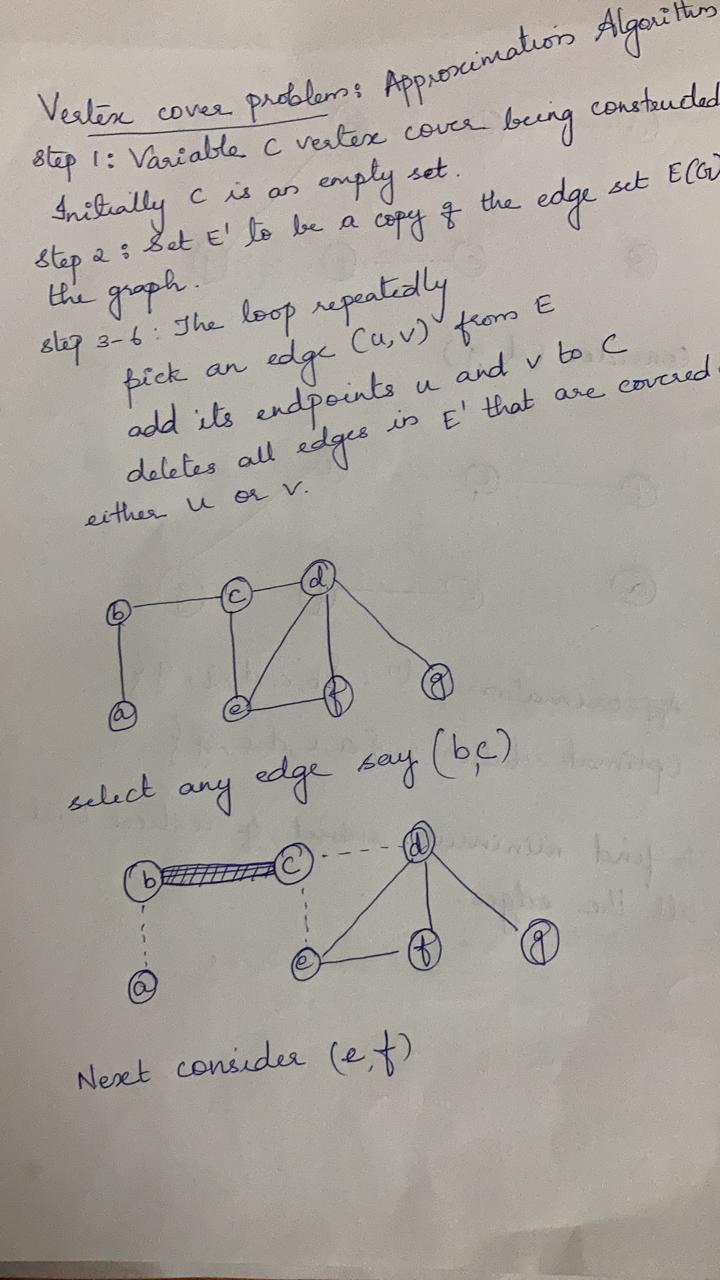 Vertex cover problem: Approximation Algorithm
Step 1: Variable C vertex cover being constructed
Initially C is an empty set.
Step 2: Set E' to be a copy of the edge set E(G)
the graph.
Step 3-6: The loop repeatedly
pick an edge (u,v) from E
add its endpoints u and v to C
deletes all edges in E' that are covered
either u or v.
b c d
a e f g
select any edge say (b,c)
b c d
a e f g
Next consider (e,f)